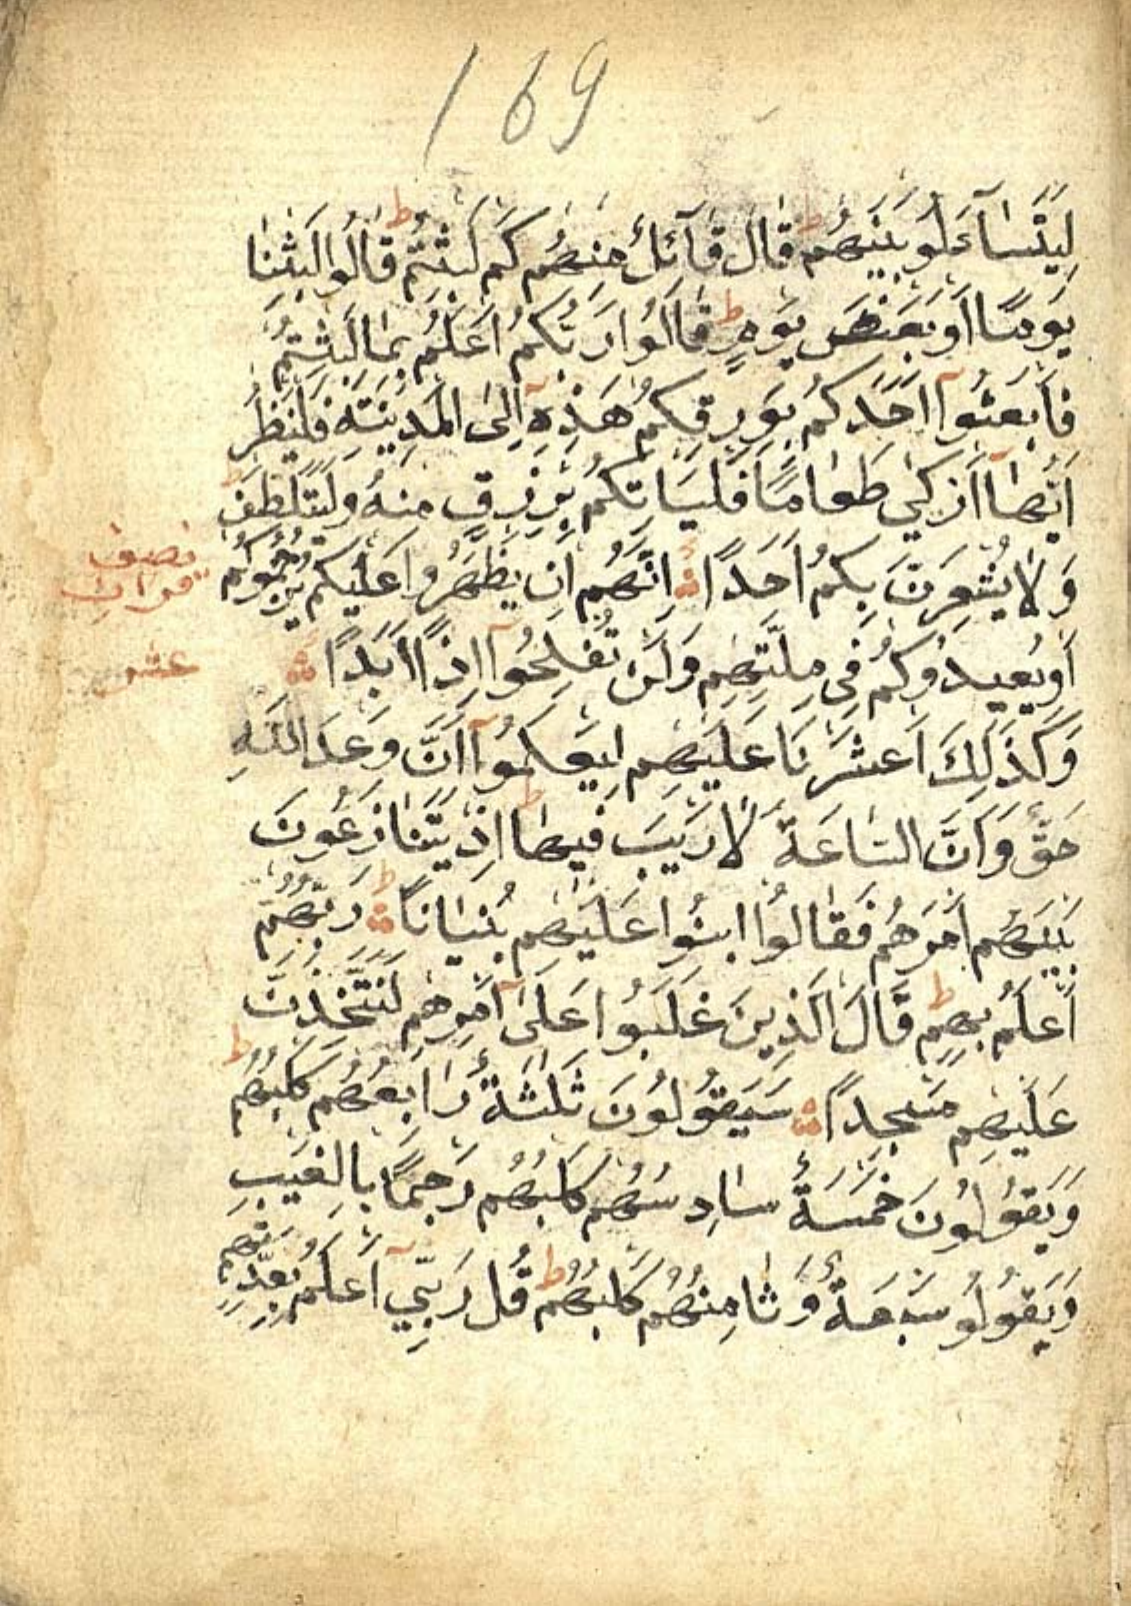 169
لِيَتَسَآءَلُو بَيْنَهُمْ ط قَالَ قَآئِلٌ مِنْهُمْ كَمْ لَبِثْتُمْ ط قَالُوا لَبِثْنَا
يَوْمًا اَوْ بَعْضَ يَوْمٍ ط قَالُوا رَبُّكُمْ اَعْلَمُ بِمَا لَبِثْتُمْ
فَابْعَثُوآ اَحَدَكُمْ بِوَرِقِكُمْ هَذِهِٓ اِلَى الْمَدِينَةِ فَلْيَنْظُرْ
اَيُّهَآ اَزْكَى طَعَامًا فَلْيَاْتِكُمْ بِرِزْقٍ مِنْهُ وَلْيَتَلَطَّفْ ط
وَلَا يُشْعِرَنَّ بِكُمْ اَحَدًا ۞ اِنَّهُمْ اِنْ يَظْهَرُوا عَلَيْكُمْ يَرْجُمُوكُمْ
نصف
قرآن
اَوْ يُعِيدُوكُمْ فِي مِلَّتِهِمْ وَلَنْ تُفْلِحُوآ اِذًا اَبَدًا ۞
عشر
وَكَذَلِكَ اَعْثَرْنَا عَلَيْهِمْ لِيَعْلَمُوآ اَنَّ وَعْدَ اللَّهِ
حَقٌّ وَاَنَّ السَّاعَةَ لَا رَيْبَ فِيهَا ط اِذْ يَتَنَازَعُونَ
بَيْنَهُمْ اَمْرَهُمْ فَقَالُوا ابْنُوا عَلَيْهِمْ بُنْيَانًا ط ۞ رَبُّهُمْ
اَعْلَمُ بِهِمْ ط قَالَ الَّذِينَ غَلَبُوا عَلَىٓ اَمْرِهِمْ لَنَتَّخِذَنَّ
عَلَيْهِمْ مَسْجِدًا ۞ سَيَقُولُونَ ثَلَثَةٌ رَابِعُهُمْ كَلْبُهُمْ ط
وَيَقُولُونَ خَمْسَةٌ سَادِسُهُمْ كَلْبُهُمْ رَجْمًا بِالْغَيْبِ
وَيَقُولُو سَبْعَةٌ وَثَامِنُهُمْ كَلْبُهُمْ ط قُلْ رَبِّيٓ اَعْلَمُ بِعِدَّتِهِمْ